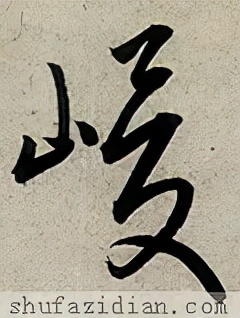 峻
shufazidian.com